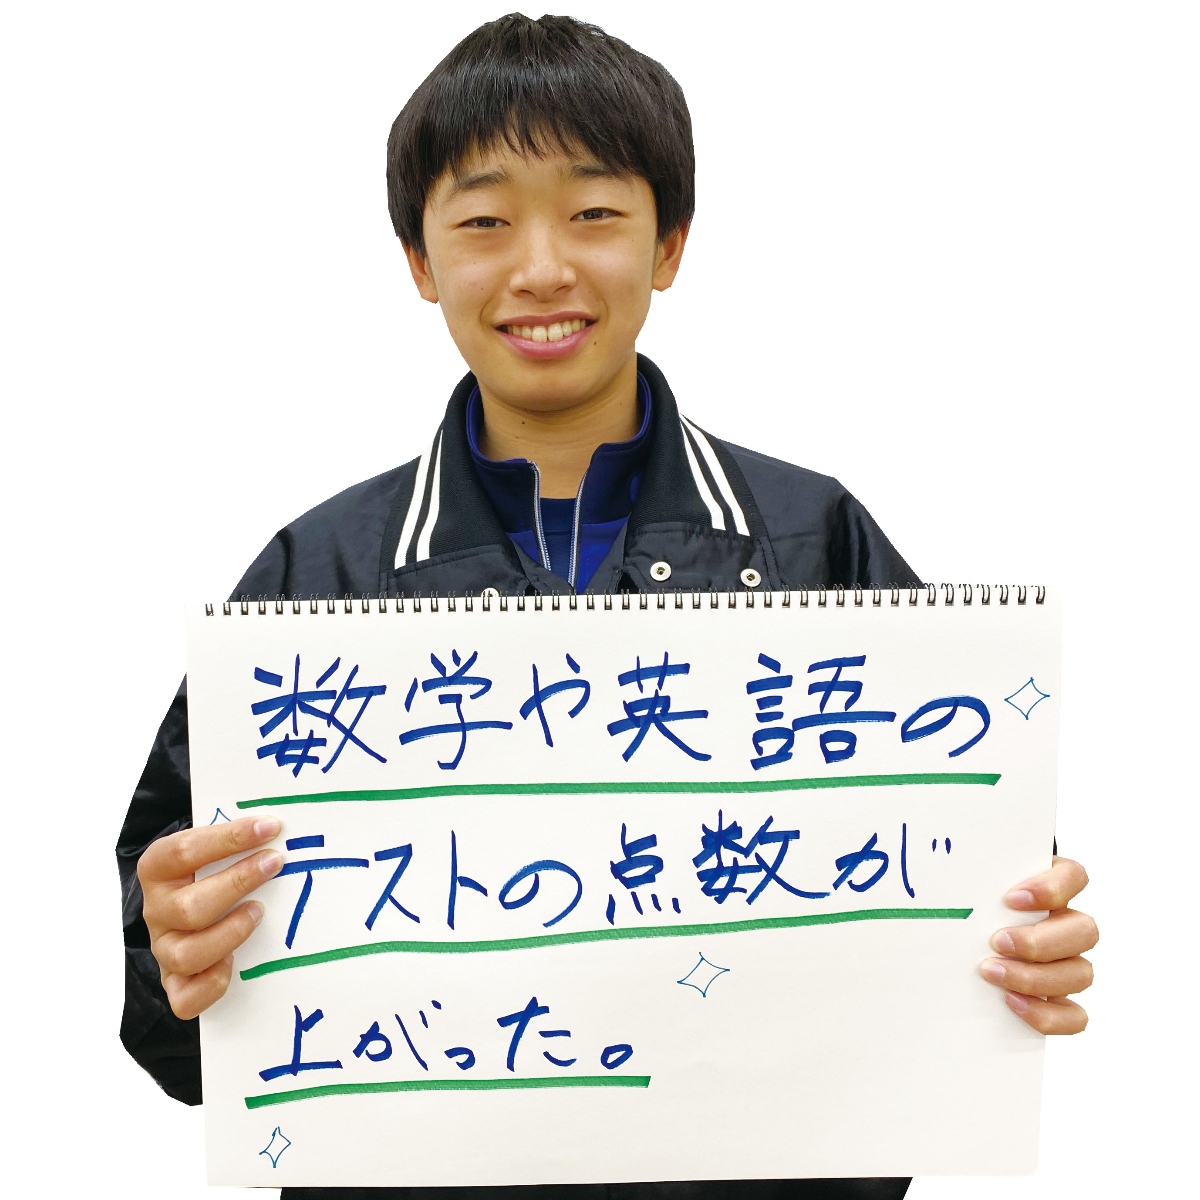 数学や英語の
テストの点数が
上がった。